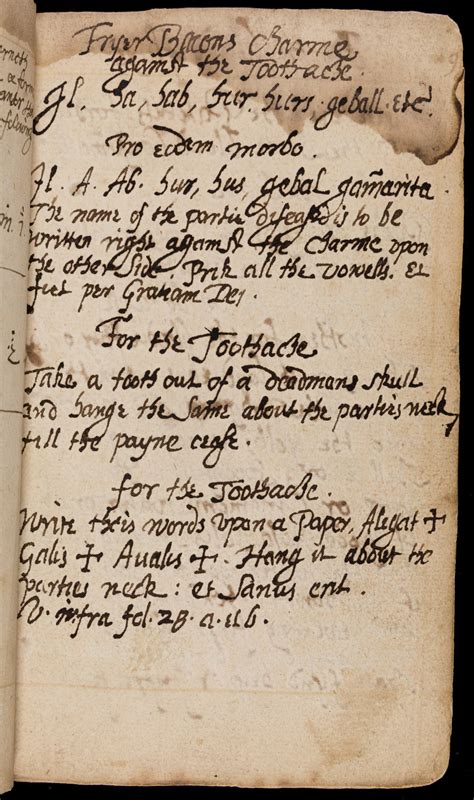 Fryer Bacons Charme
against the Toothache
Jl. ha, hab, hur, hurs, geball. etc.
Pro eodem morbo.
Jl. A. Ab. hur, hus, gebal gam̃arita.
The name of the partie diseased is to be
written right against the Charme upon
the other side. Prik all the vowells. Et
fiet per Gratiam Dei.
For the Toothache
Take a tooth out of a deadmans skull
and hange the same about the parties neck
till the payne cease.
for the Toothache.
Write theis words upon a Paper, Alegat ✠
Galis ✠ Aualis ✠. Hang it about the
parties neck : et Sanus erit.
V. infra fol. 28. a. et b.